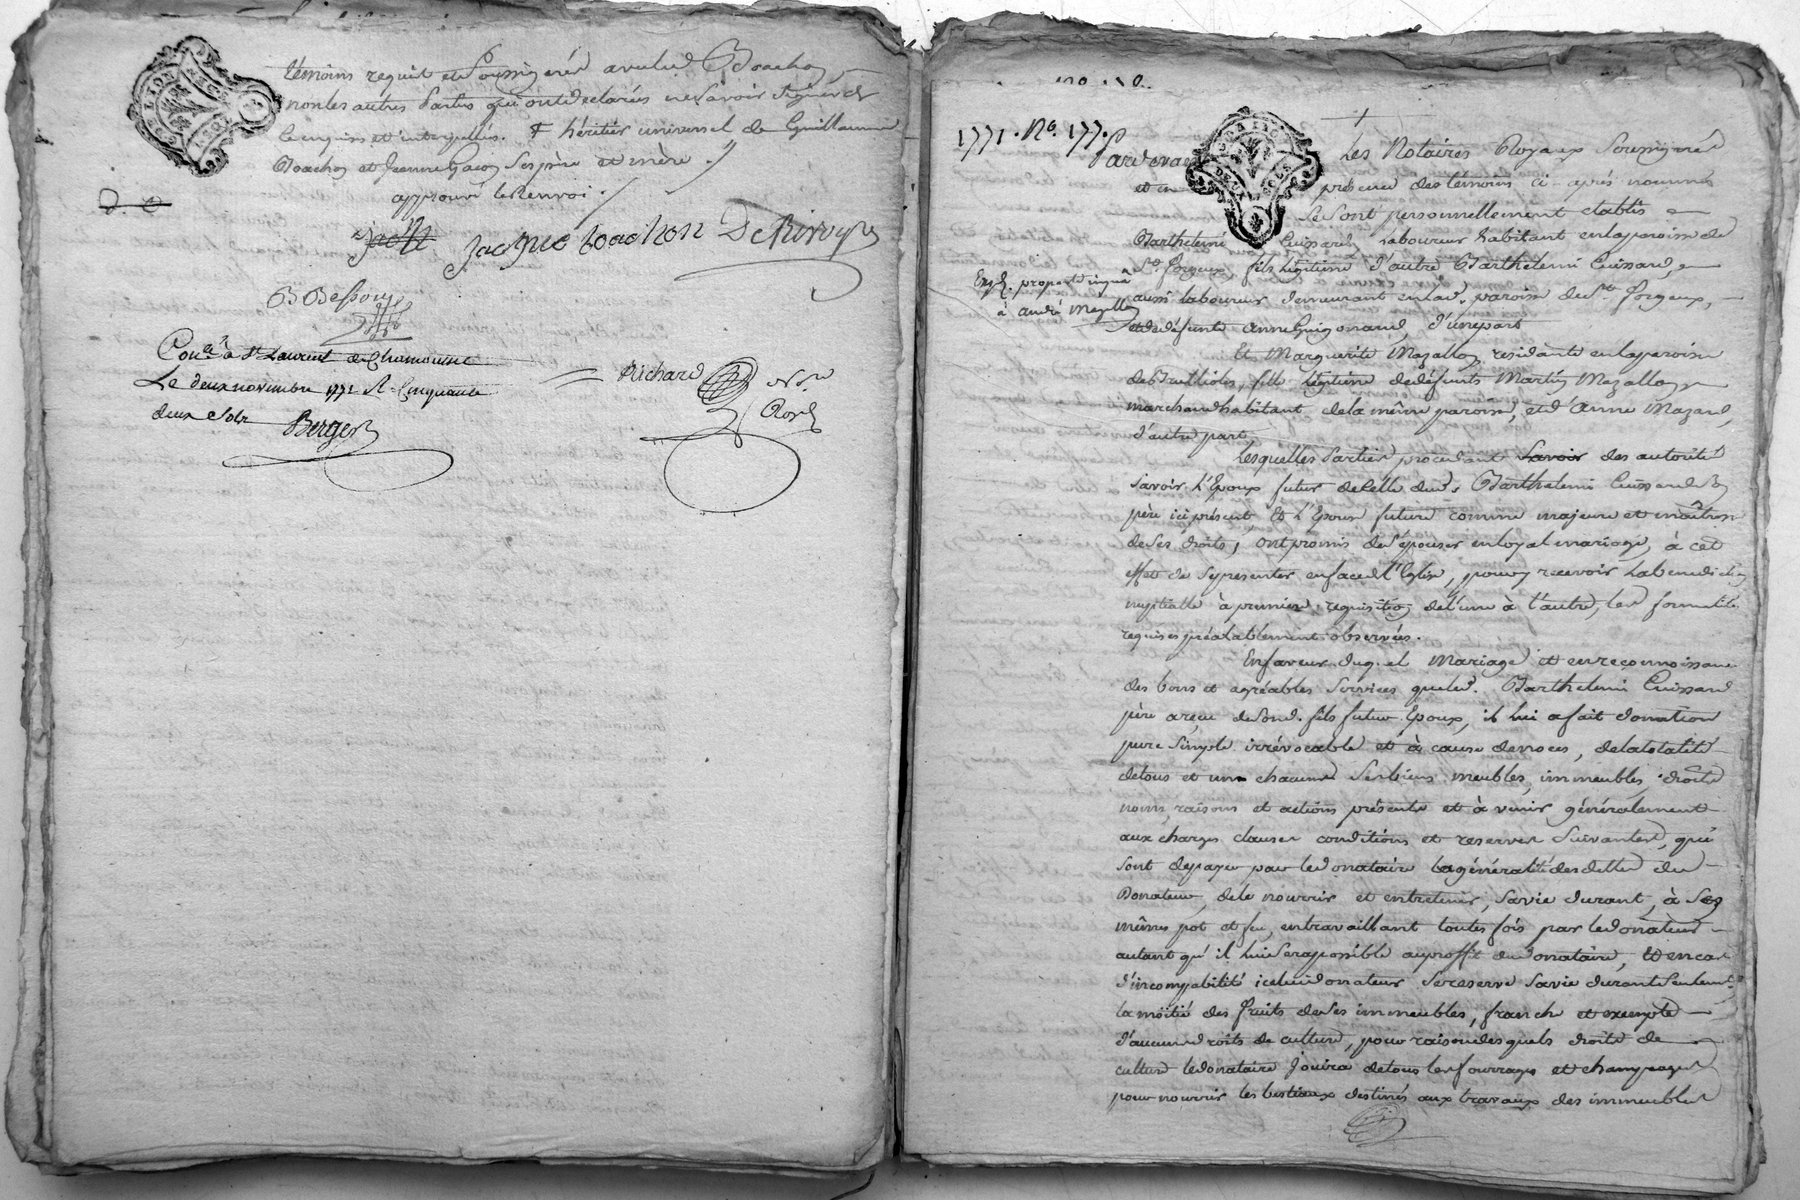 témoins requis et soussignés avec led. Boachon
non les autres parties qui ont déclarés ne savoir signer de
ce enquis et interpellés. + héritier universel de Guillaume
Boachon et Jeanne Gacon ses père et mère.
approuvé le renvoi.
Jacque boachon DeRivoyre
B Bessouy
Con.lé à St Laurent de Chamousset
Le deux novembre 1771 R. Cinquante
deux sols Berger
Richard N.re
Royal
1771. No. 177.
Pardevant Les Notaires Royaux Soussignés
et en présence des témoins ci-après nommés
se sont personnellement établis
Barthelemi Cuissard Laboureur habitant en la paroisse de
St. Forgeux, fils légitime d'autre Barthelemi Cuissard,
aussi laboureur demeurant en lad. paroisse de St. Forgeux,
et de défunte Anne Guigonand, d'une part
Exp.
à André Mazallon
Et Marguerite Mazallon résidante en la paroisse
des Brullioles, fille légitime de défunts Martin Mazallon
marchand habitant de la même paroisse, et d'Anne Mazard,
d'autre part,
Lesquelles Parties procédant savoir des autorité
savoir l'Epoux futur de celle dud. Barthelemi Cuissard
père ici présent Et l'Epouse future comme majeure et maîtresse
de ses droits, ont promis de s'épouser en loyal mariage, à cet
effet de se presenter en face de l'Eglise, pour y recevoir la bénédiction
nuptialle à première requisition de l'une à l'autre, les formalités
requises préalablement observées.
En faveur duq.el Mariage et en reconnoissance
des bons et agréables services que led. Barthelemi Cuissard
père a reçu de sond. fils futur Epoux, il lui a fait donation
pure simple irrévocable et à cause de noces, de la totalité
de tous et un chacuns ses biens meubles, immeubles, droits
noms, raisons et actions présents et à venir généralement
aux charges clauses conditions et reserves suivantes, qui
sont de payer par le donataire la généralité des dettes du
Donateur, de le nourrir et entretenir, sa vie durant, à ses
mêmes pot et feu, en travaillant toutes fois par le donateur
autant qu'il lui sera possible au proffit du donataire, Et en cas
d'incompabilité icelui donateur se reserve sa vie durant seulement
la moitié des fruits de ses immeubles, franche et exempte
d'aucuns droits de culture, pour raison desquels droits de
culture le donataire jouira de tous les fourrages et champeages
pour nourrir les bestiaux destinés aux travaux des immeubles